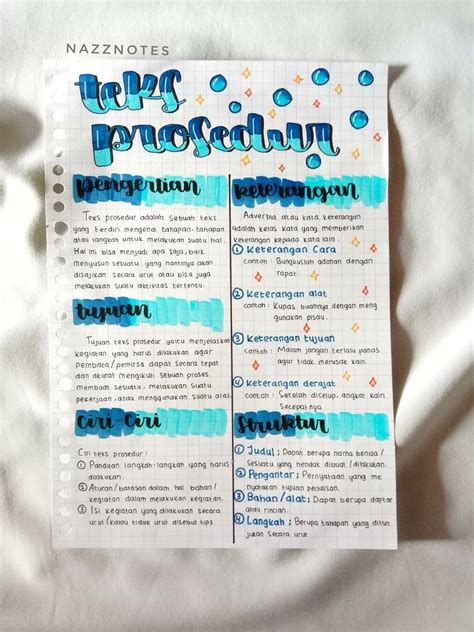 NAZZNOTES
teks
prosedur
pengertian
Teks prosedur adalah sebuah teks
yang terdiri mengenai tahapan-tahapan
atau langkah untuk melakukan suatu hal.
Hal ini bisa menjadi apa saja, baik
menyusun sesuatu yang nantinya akan
disajikan secara urut atau bisa juga
melakukan suatu aktivitas tertentu.
tujuan
Tujuan teks prosedur yaitu menjelaskan
kegiatan yang harus dilakukan agar
pembaca/pemirsa dapat secara tepat
dan akurat mengikuti sebuah proses
membuat sesuatu, melakukan suatu
pekerjaan, atau menggunakan suatu alat
Ciri-Ciri
Ciri teks prosedur:
1 Panduan langkah-langkah yang harus
dilakukan.
2 Aturan/batasan dalam hal bahan/
kegiatan dalam melakukan kegiatan.
3 Isi kegiatan yang dilakukan secara
urut (kalau tidak urut disebut tips
keterangan
Adverbia atau kata keterangan
adalah kelas kata yang memberikan
keterangan kepada kata lain.
1 Keterangan Cara
contoh : Bungkuslah adonan dengan
rapat.
2 Keterangan alat
contoh : Kupas buahnya dengan meng
gunakan pisau.
3 Keterangan tujuan
contoh : Masam jangan terlalu panas
agar tidak merusak kain.
4 Keterangan derajat
contoh : Setelah dicelup, angkat kain
Secepatnya
Struktur
1 Judul; Dapat berupa nama benda/
Sesuatu yang hendak dibuat/dilakukan.
2 Pengantar; Pernyataan yang me
nyatakan tujuan penulisan.
3 Bahan/alat; Dapat berupa daftar
atau rincian.
4 Langkah; Berupa tahapan yang ditun
jukan secara urut